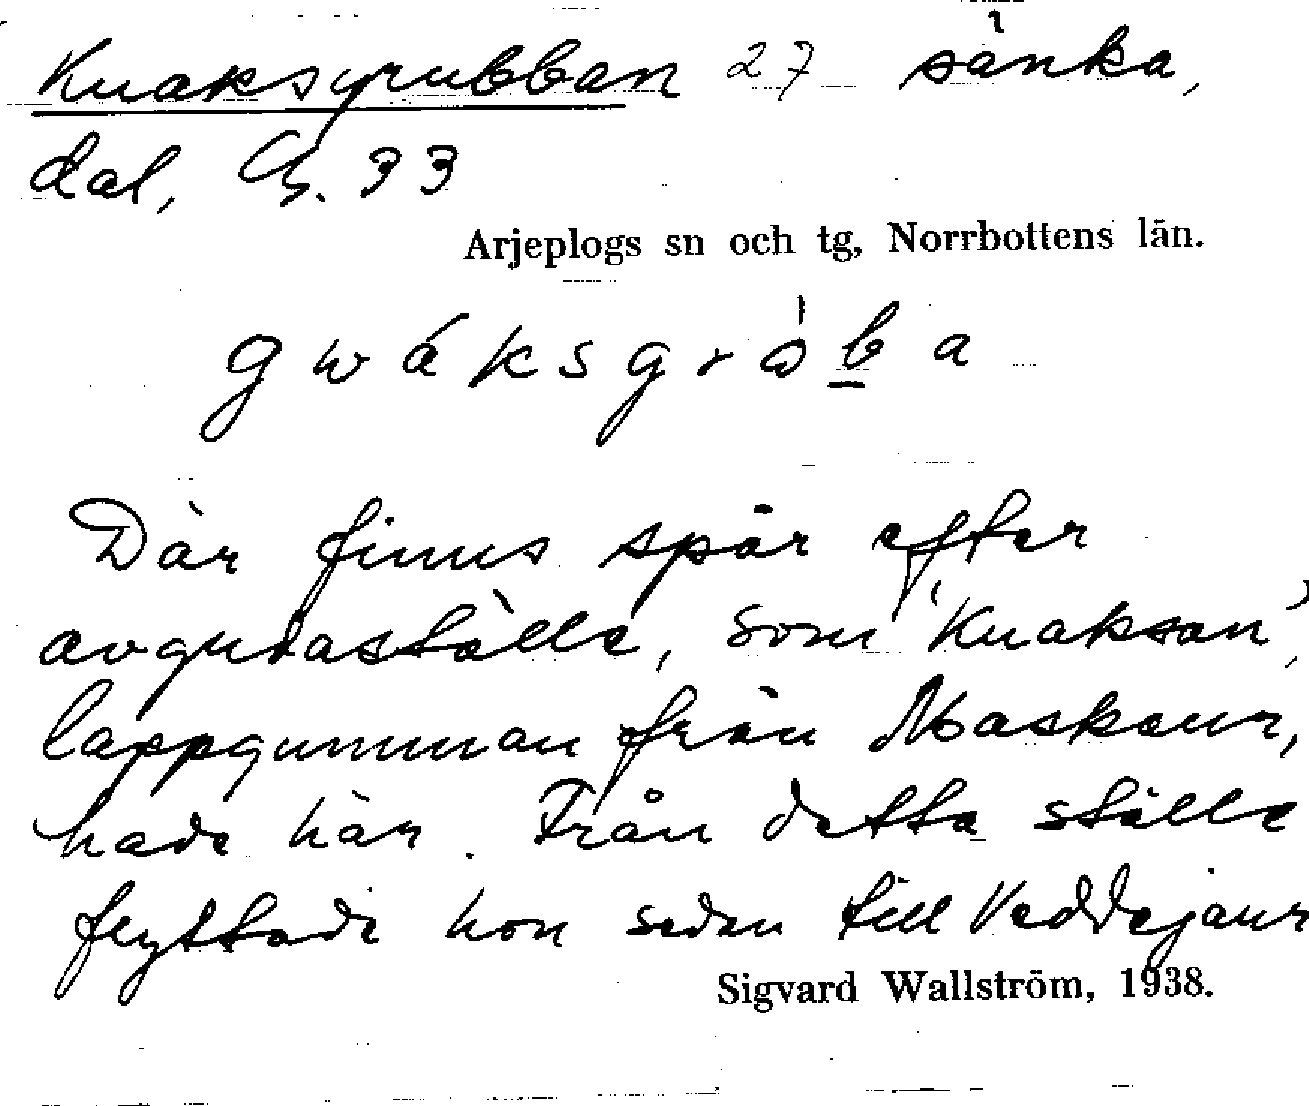 Kuaksgrubban 27 sänka,
dal, G. 33
Arjeplogs sn och tg, Norrbottens län.
g w á k s g r b a
Där finns spår efter
avgudaställe, som 'Kuaksan',
lappgumman från Maskaur,
hade här. Från detta ställe
flyttade hon sedan till Veddejaur
Sigvard Wallström, 1938.